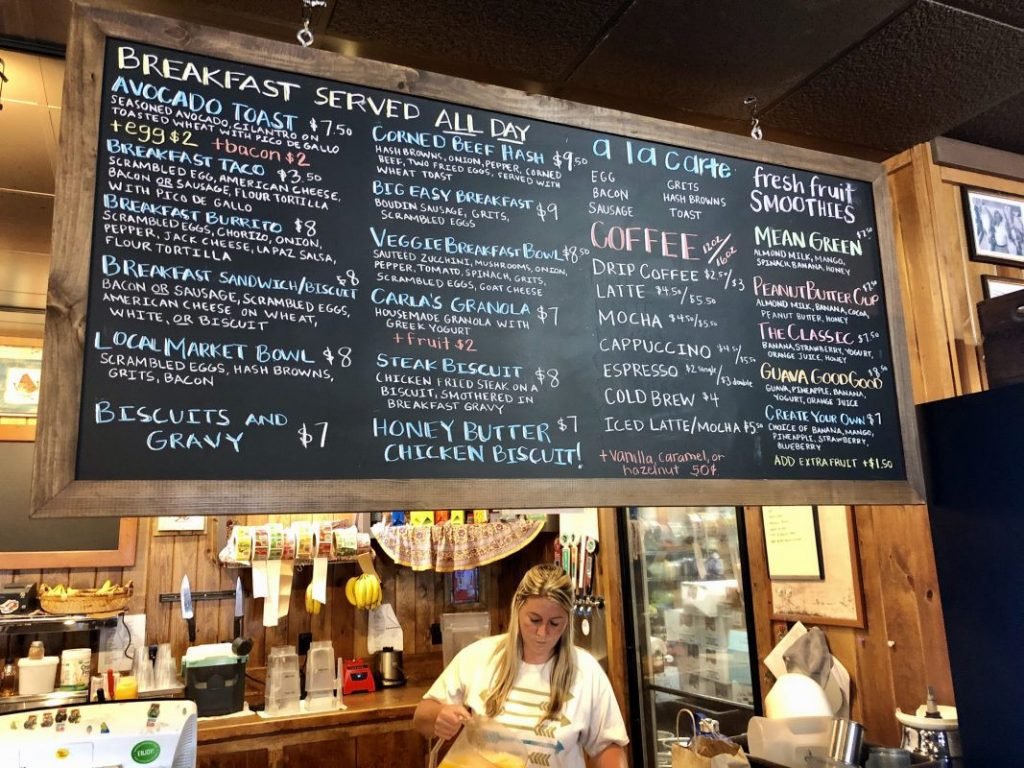 BREAKFAST SERVED ALL DAY
AVOCADO TOAST $7.50
SEASONED AVOCADO, CILANTRO ON
TOASTED WHEAT WITH PICO DE GALLO
+egg $2 +bacon $2
BREAKFAST TACO $3.50
SCRAMBLED EGG, AMERICAN CHEESE,
BACON OR SAUSAGE, FLOUR TORTILLA
WITH PICO DE GALLO
BREAKFAST BURRITO $8
SCRAMBLED EGGS, CHORIZO, ONION,
PEPPER, JACK CHEESE, LA PAZ SALSA,
FLOUR TORTILLA
BREAKFAST SANDWICH/BISCUIT $8
BACON OR SAUSAGE, SCRAMBLED EGGS,
AMERICAN CHEESE ON WHEAT,
WHITE, OR BISCUIT
LOCAL MARKET BOWL $8
SCRAMBLED EGGS, HASH BROWNS,
GRITS, BACON
BISCUITS AND
GRAVY $7
CORNED BEEF HASH $9.50
HASH BROWNS, ONION, PEPPER, CORNED
BEEF, TWO FRIED EGGS, SERVED WITH
WHEAT TOAST
BIG EASY BREAKFAST $9
BOUDIN SAUSAGE, GRITS,
SCRAMBLED EGGS
VEGGIE BREAKFAST BOWL $8.50
SAUTEED ZUCCHINI, MUSHROOMS, ONION,
PEPPER, TOMATO, SPINACH, GRITS,
SCRAMBLED EGGS, GOAT CHEESE
CARLA'S GRANOLA $7
HOUSEMADE GRANOLA WITH
GREEK YOGURT
+fruit $2
STEAK BISCUIT $8
CHICKEN FRIED STEAK ON A
BISCUIT, SMOTHERED IN
BREAKFAST GRAVY
HONEY BUTTER $7
CHICKEN BISCUIT!
a la carte
EGG GRITS
BACON HASH BROWNS
SAUSAGE TOAST
COFFEE 12oz/16oz
DRIP COFFEE $2.50/$3
LATTE $4.50/$5.50
MOCHA $4.50/$5.50
CAPPUCCINO $4.50/$5.50
ESPRESSO $2 single/$3 double
COLD BREW $4
ICED LATTE/MOCHA $5.50
+vanilla, caramel, or
hazelnut 50¢
fresh fruit
SMOOTHIES
MEAN GREEN $7.50
ALMOND MILK, MANGO,
SPINACH, BANANA, HONEY
PEANUT BUTTER CUP
ALMOND MILK, BANANA, COCOA,
PEANUT BUTTER, HONEY
THE CLASSIC $7.50
BANANA, STRAWBERRY, YOGURT,
ORANGE JUICE, HONEY
GUAVA GOOD GOOD $8.50
GUAVA, PINEAPPLE, BANANA,
YOGURT, ORANGE JUICE
CREATE YOUR OWN $7
CHOICE OF BANANA, MANGO,
PINEAPPLE, STRAWBERRY,
BLUEBERRY
ADD EXTRA FRUIT +$1.50
ENJOY!